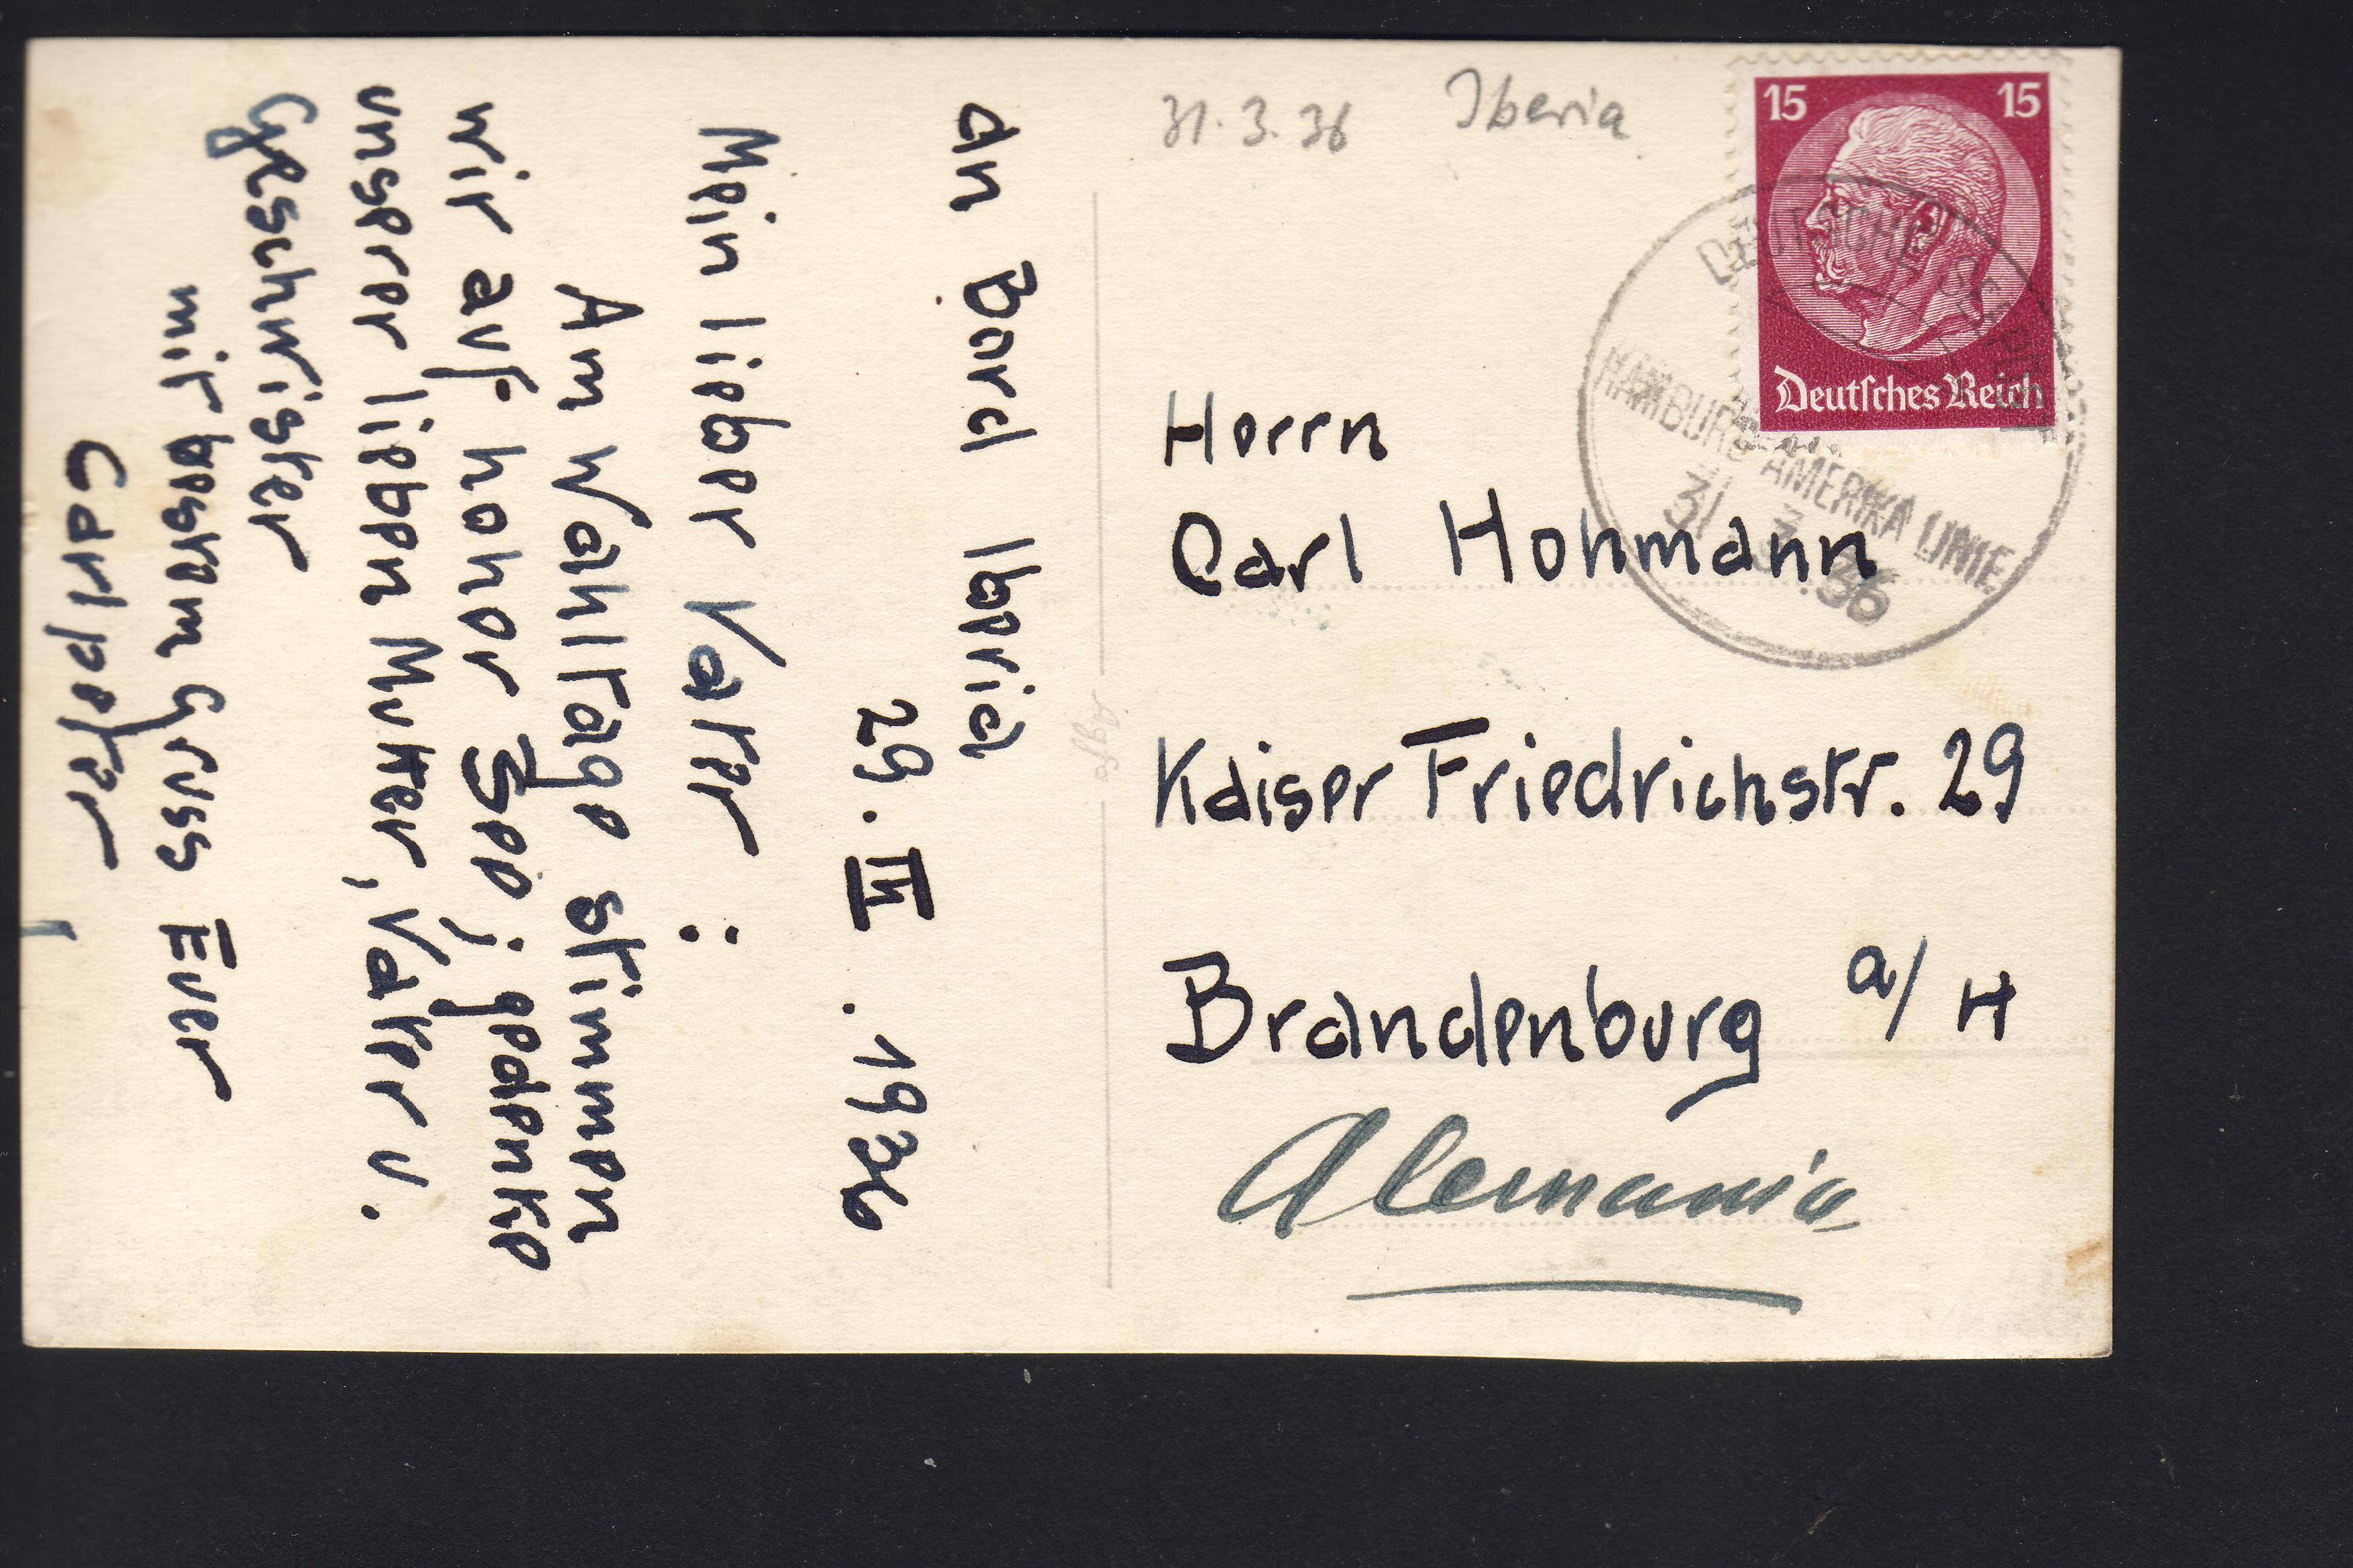 31.3.36 Iberia
15 15
Deutsches Reich
DEUTSCHE SEEPOST
HAMBURG-AMERIKA LINIE
31.3.36
Herrn
Carl Hohmann
Kaiser Friedrichstr. 29
Brandenburg a/H
Alemania
Agfa
an Bord Iberia
29. III. 1936
Mein lieber Vater:
Am Wahltage stimmen
wir auf hoher See; gedenke
unserer lieben Mutter, Vater u.
Geschwister
mit besten Gruss Euer
Carl